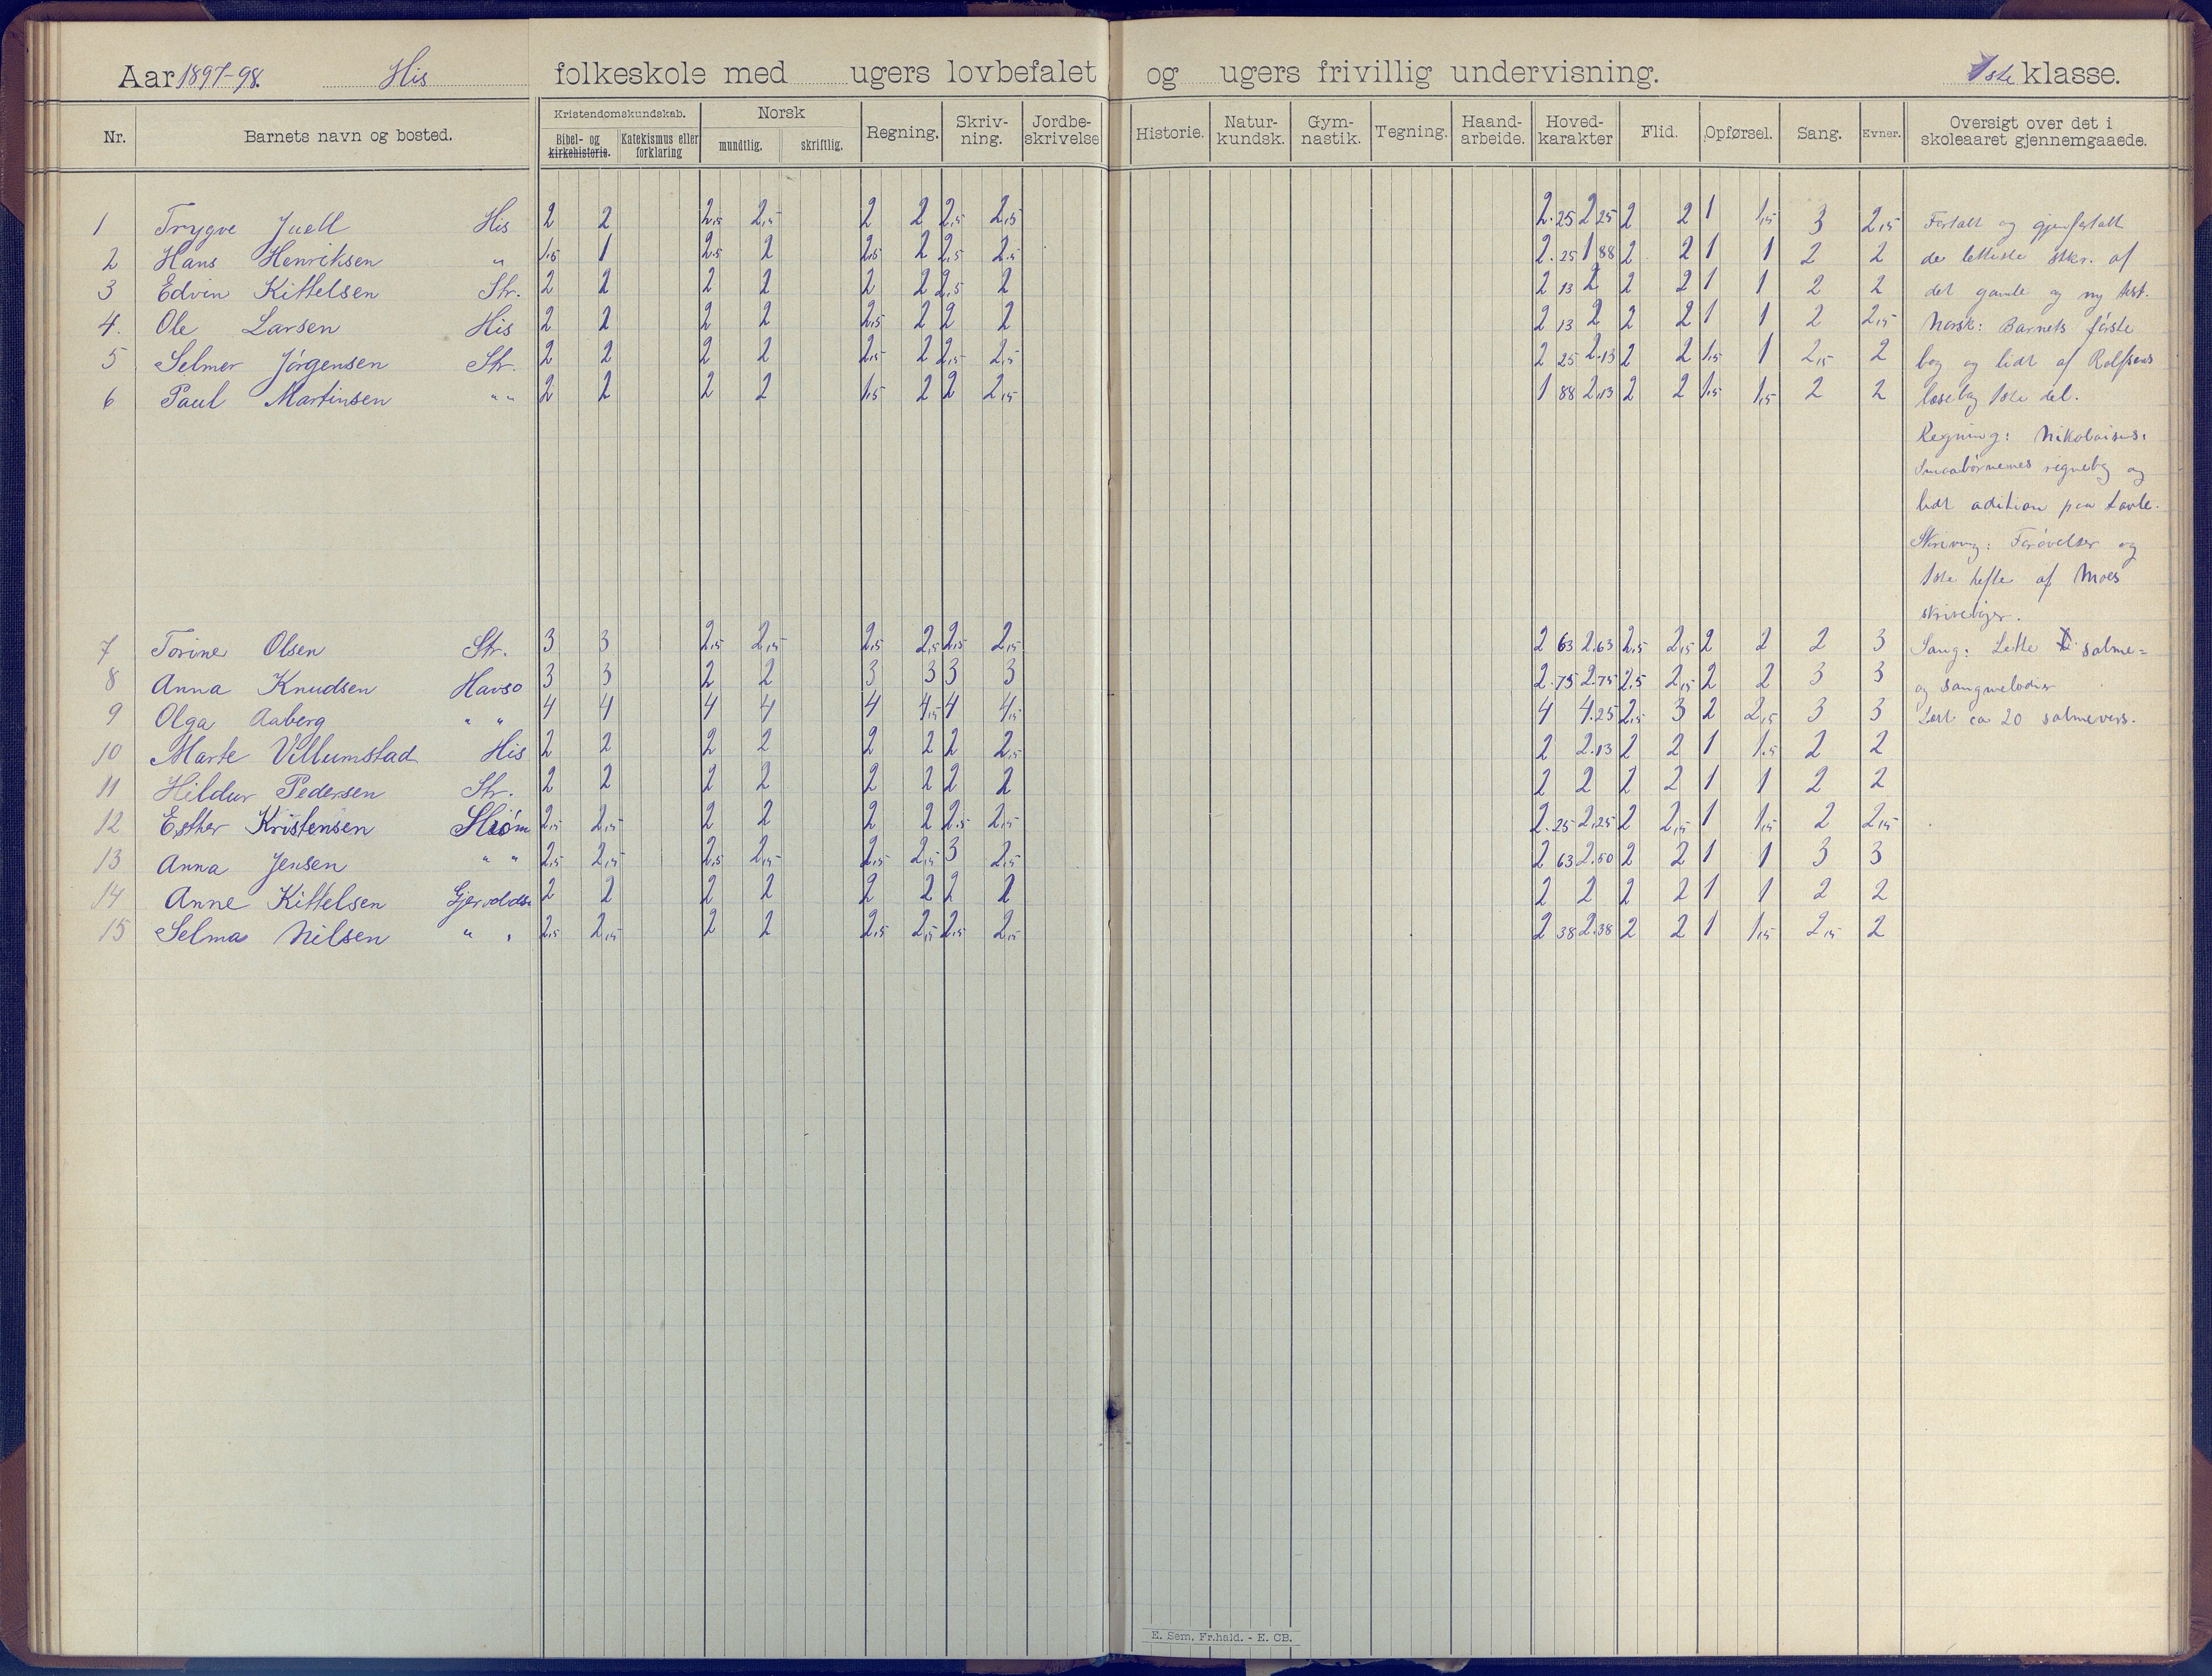 Aar 1897-98. His folkeskole med ugers lovbefalet og ugers frivillig undervisning. 1ste klasse.
Nr. Barnets navn og bosted. Kristendomskundskab. Bibel- og kirkehistorie. Katekismus eller forklaring Norsk mundtlig. skriftlig. Regning. Skriv-ning. Jordbe-skrivelse Historie. Natur-kundsk. Gym-nastik. Tegning. Haand-arbeide. Hoved-karakter Flid. Opførsel. Sang. Evner. Oversigt over det i skoleaaret gjennemgaaede.
1 Trygve Juell His 2 2 2,5 2,5 2 2 2,5 2,5 2.25 2 25 2 2 1 1,5 3 2,5 Fortalt og gjenfortalt
2 Hans Henriksen " 1.5 1 2.5 2 2.5 2 2,5 2.5 2.25 1 88 2 2 1 1 2 2 de letteste stkr. af
3 Edvin Kittelsen Str. 2 2 2 2 2 2 2,5 2 2 13 2 2 2 1 1 2 2 det gamle og ny test.
4. Ole Larsen His 2 2 2 2 2,5 2 2 2 2 13 2 2 2 1 1 2 2,5 Norsk: Barnets første
5 Selmer Jörgensen Str. 2 2 2 2 2,5 2 2,5 2,5 2 25 2.13 2 2 1.5 1 2,5 2 bog og lidt af Rolfsens
6 Paul Martinsen " " 2 2 2 2 1.5 2 2 2,5 1 88 2,13 2 2 1.5 1,5 2 2 læsebog 1ste del.
Regning: Nikolaisens:
Smaabørnenes regnebog og
lidt adition paa tavle.
Skrivning: Forøvelser og
1ste hefte af Moes
skrivebøger.
7 Torine Olsen Str. 3 3 2,5 2,5 2,5 2,5 2,5 2,5 2 63 2.63 2,5 2,5 2 2 2 3 Sang: Lette salme=
8 Anna Knudsen Havsö 3 3 2 2 3 3 3 3 2.75 2.75 2.5 2,5 2 2 3 3 og sangmelodier
9 Olga Aaberg " " 4 4 4 4 4 4,5 4 4,5 4 4.25 2,5 3 2 2,5 3 3 Lært ca 20 salmevers.
10 Marte Villumstad His 2 2 2 2 2 2 2 2,5 2 2.13 2 2 1 1.5 2 2
11 Hildur Pedersen Str. 2 2 2 2 2 2 2 2 2 2 2 2 1 1 2 2
12 Esther Kristensen Ström 2,5 2,5 2 2 2 2 2.5 2,5 2.25 2,25 2 2,5 1 1,5 2 2,5
13 Anna Jensen " " 2,5 2,5 2,5 2,5 2,5 2,5 3 2,5 2 63 2.50 2 2 1 1 3 3
14 Anne Kittelsen Gjervolds 2 2 2 2 2 2 2 2 2 2 2 2 1 1 2 2
15 Selma Nilsen " " 2,5 2,5 2 2 2,5 2,5 2,5 2,5 2 38 2.38 2 2 1 1,5 2,5 2
E. Sem, Fr.hald. - E. CB.